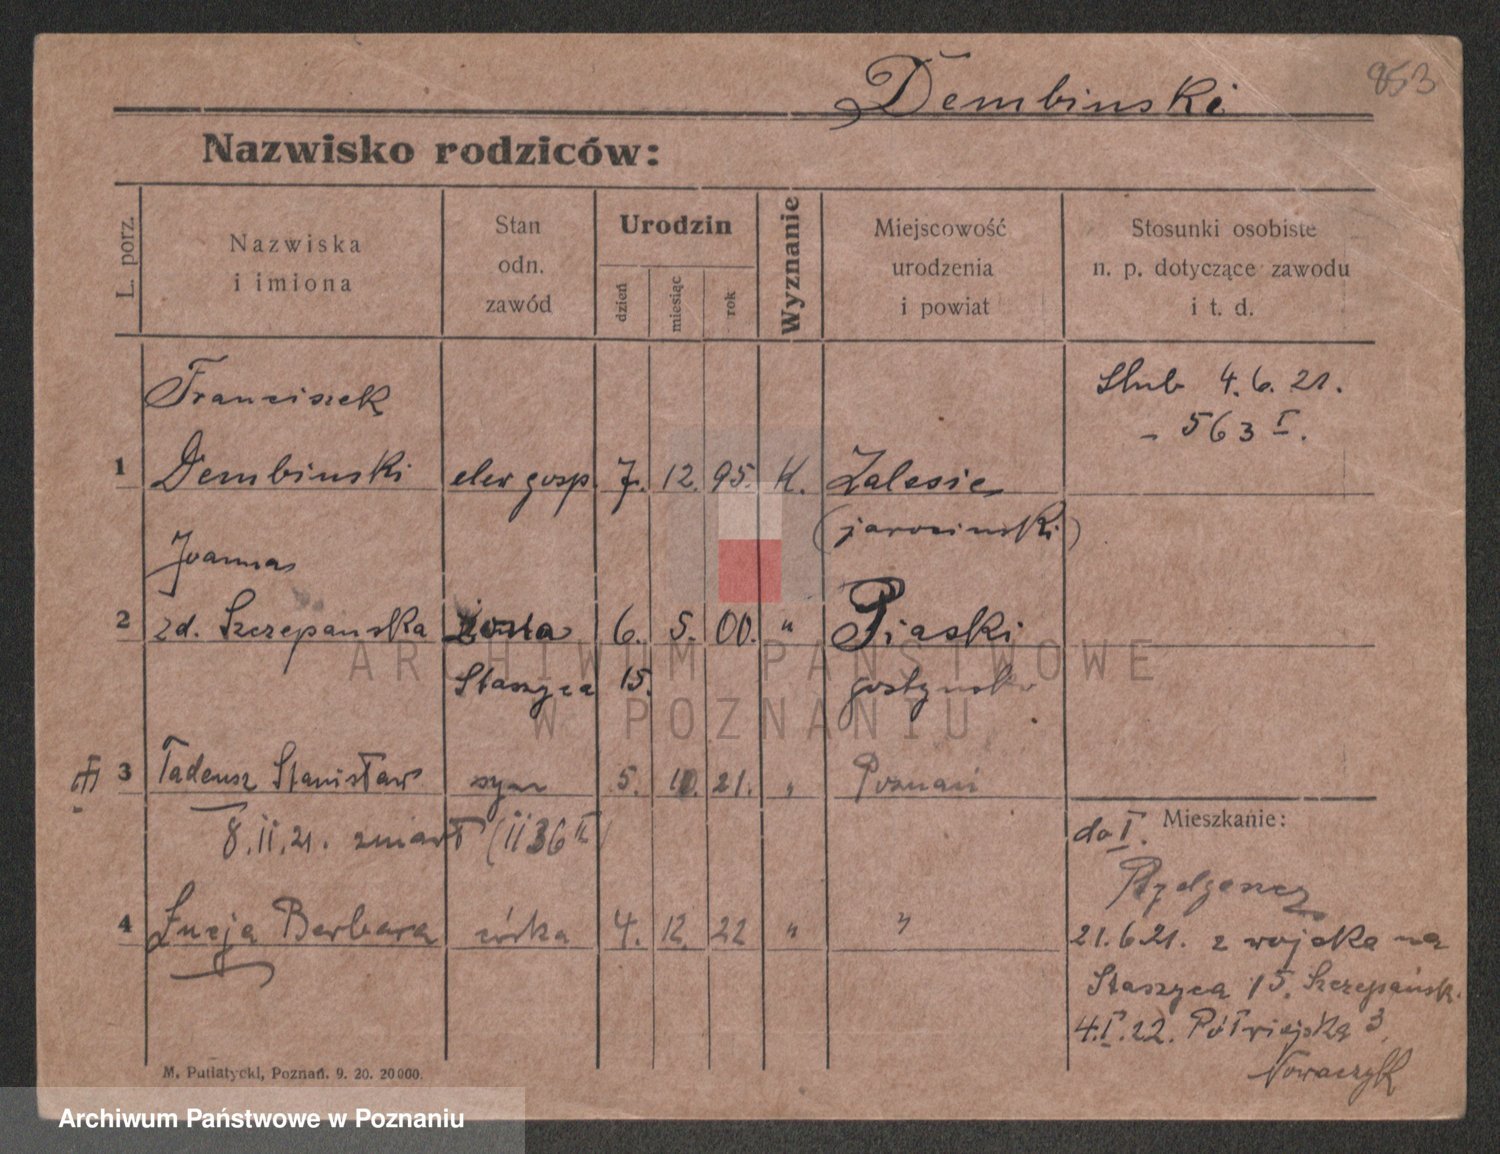 Dembinski
853
Nazwisko rodziców:
L. porz.
Nazwiska
i imiona
Stan
odn.
zawód
Urodzin
dzień
miesiąc
rok
Wyznanie
Miejscowość
urodzenia
i powiat
Stosunki osobiste
n. p. dotyczące zawodu
i t. d.
Franciszek
Ślub 4.6.21.
- 563 I.
1 Dembinski elew gosp 7. 12. 95. K. Zalesie
(jarocinski)
Joanna
2 zd. Szczepańska żona 6. 5. 00. " Piaski
Staszyca 15. gostynski
3 Tadeusz Stanisław syn 5. 10. 21. " Poznań
8.II.21. zmarł (1136 II)
Mieszkanie:
do I.
Bydgoszcz
4 Łucja Barbara córka 4. 12. 22 " "
21.6.21. z wojska na
Staszyca 15. Szczepańsk.
4.I.22. Półwiejska 3,
Nowaczyk
M. Putiatycki, Poznań. 9. 20. 20000.
ARCHIWUM PAŃSTWOWE
W POZNANIU
Archiwum Państwowe w Poznaniu